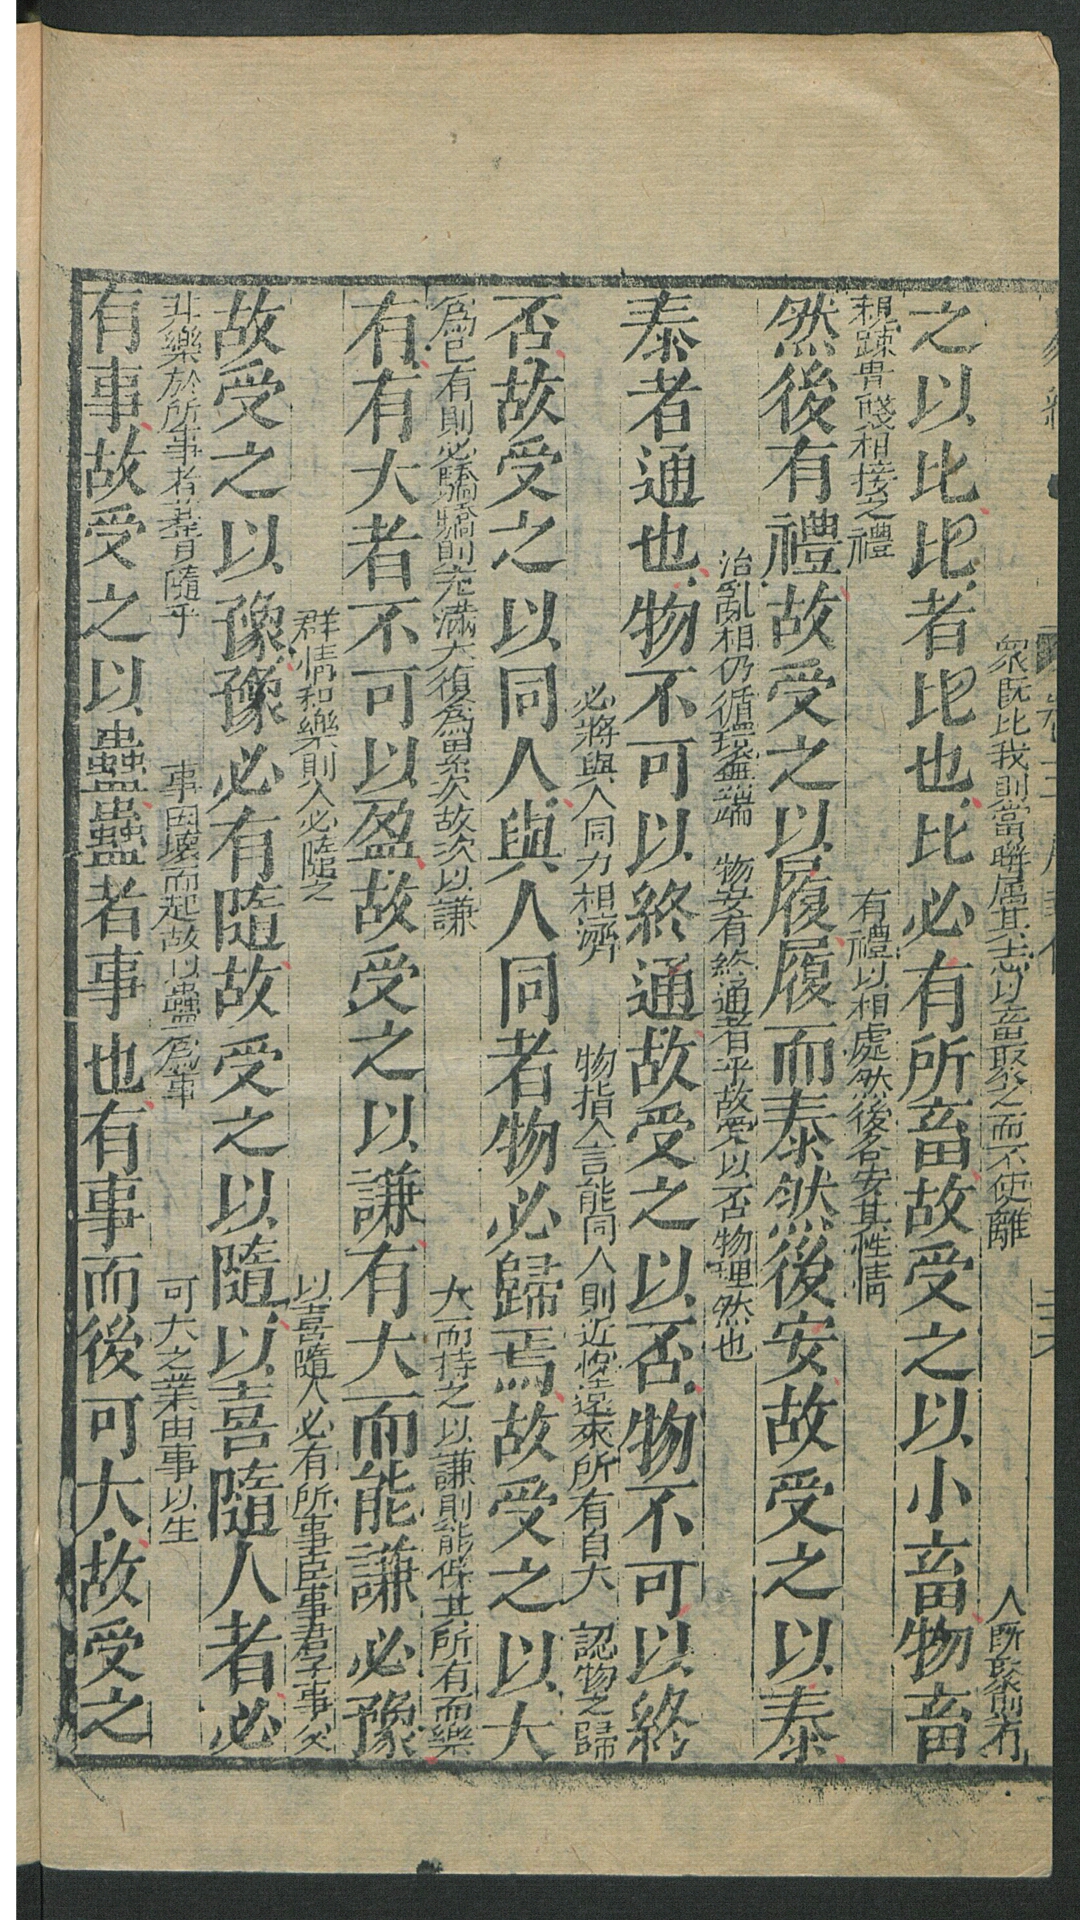 衆既比我則當聯屬其志以畜聚之而不使離　人所聚則有
之以比比者比也比必有所畜故受之以小畜物畜
親踈貴賤相接之禮　有禮以相處然後各安其性情
然後有禮故受之以履履而泰然後安故受之以泰
治亂相仍循環無端　物安有終通者乎故受以否物理然也
泰者通也物不可以終通故受之以否物不可以終
必將與人同力相濟　物指人言能同人則近悅遠來所有自大　認物之歸
否故受之以同人與人同者物必歸焉故受之以大
爲己有則必驕驕則充滿大復爲累次故次以謙　大而持之以謙則能保其所有而樂
有有大者不可以盈故受之以謙有大而能謙必豫
群情和樂則人必隨之　以喜隨人必有所事臣事君子事父
故受之以豫豫必有隨故受之以隨以喜隨人者必
非樂於所事者其肯隨乎　事因壞而起故以蠱爲事　可大之業由事以生
有事故受之以蠱蠱者事也有事而後可大故受之